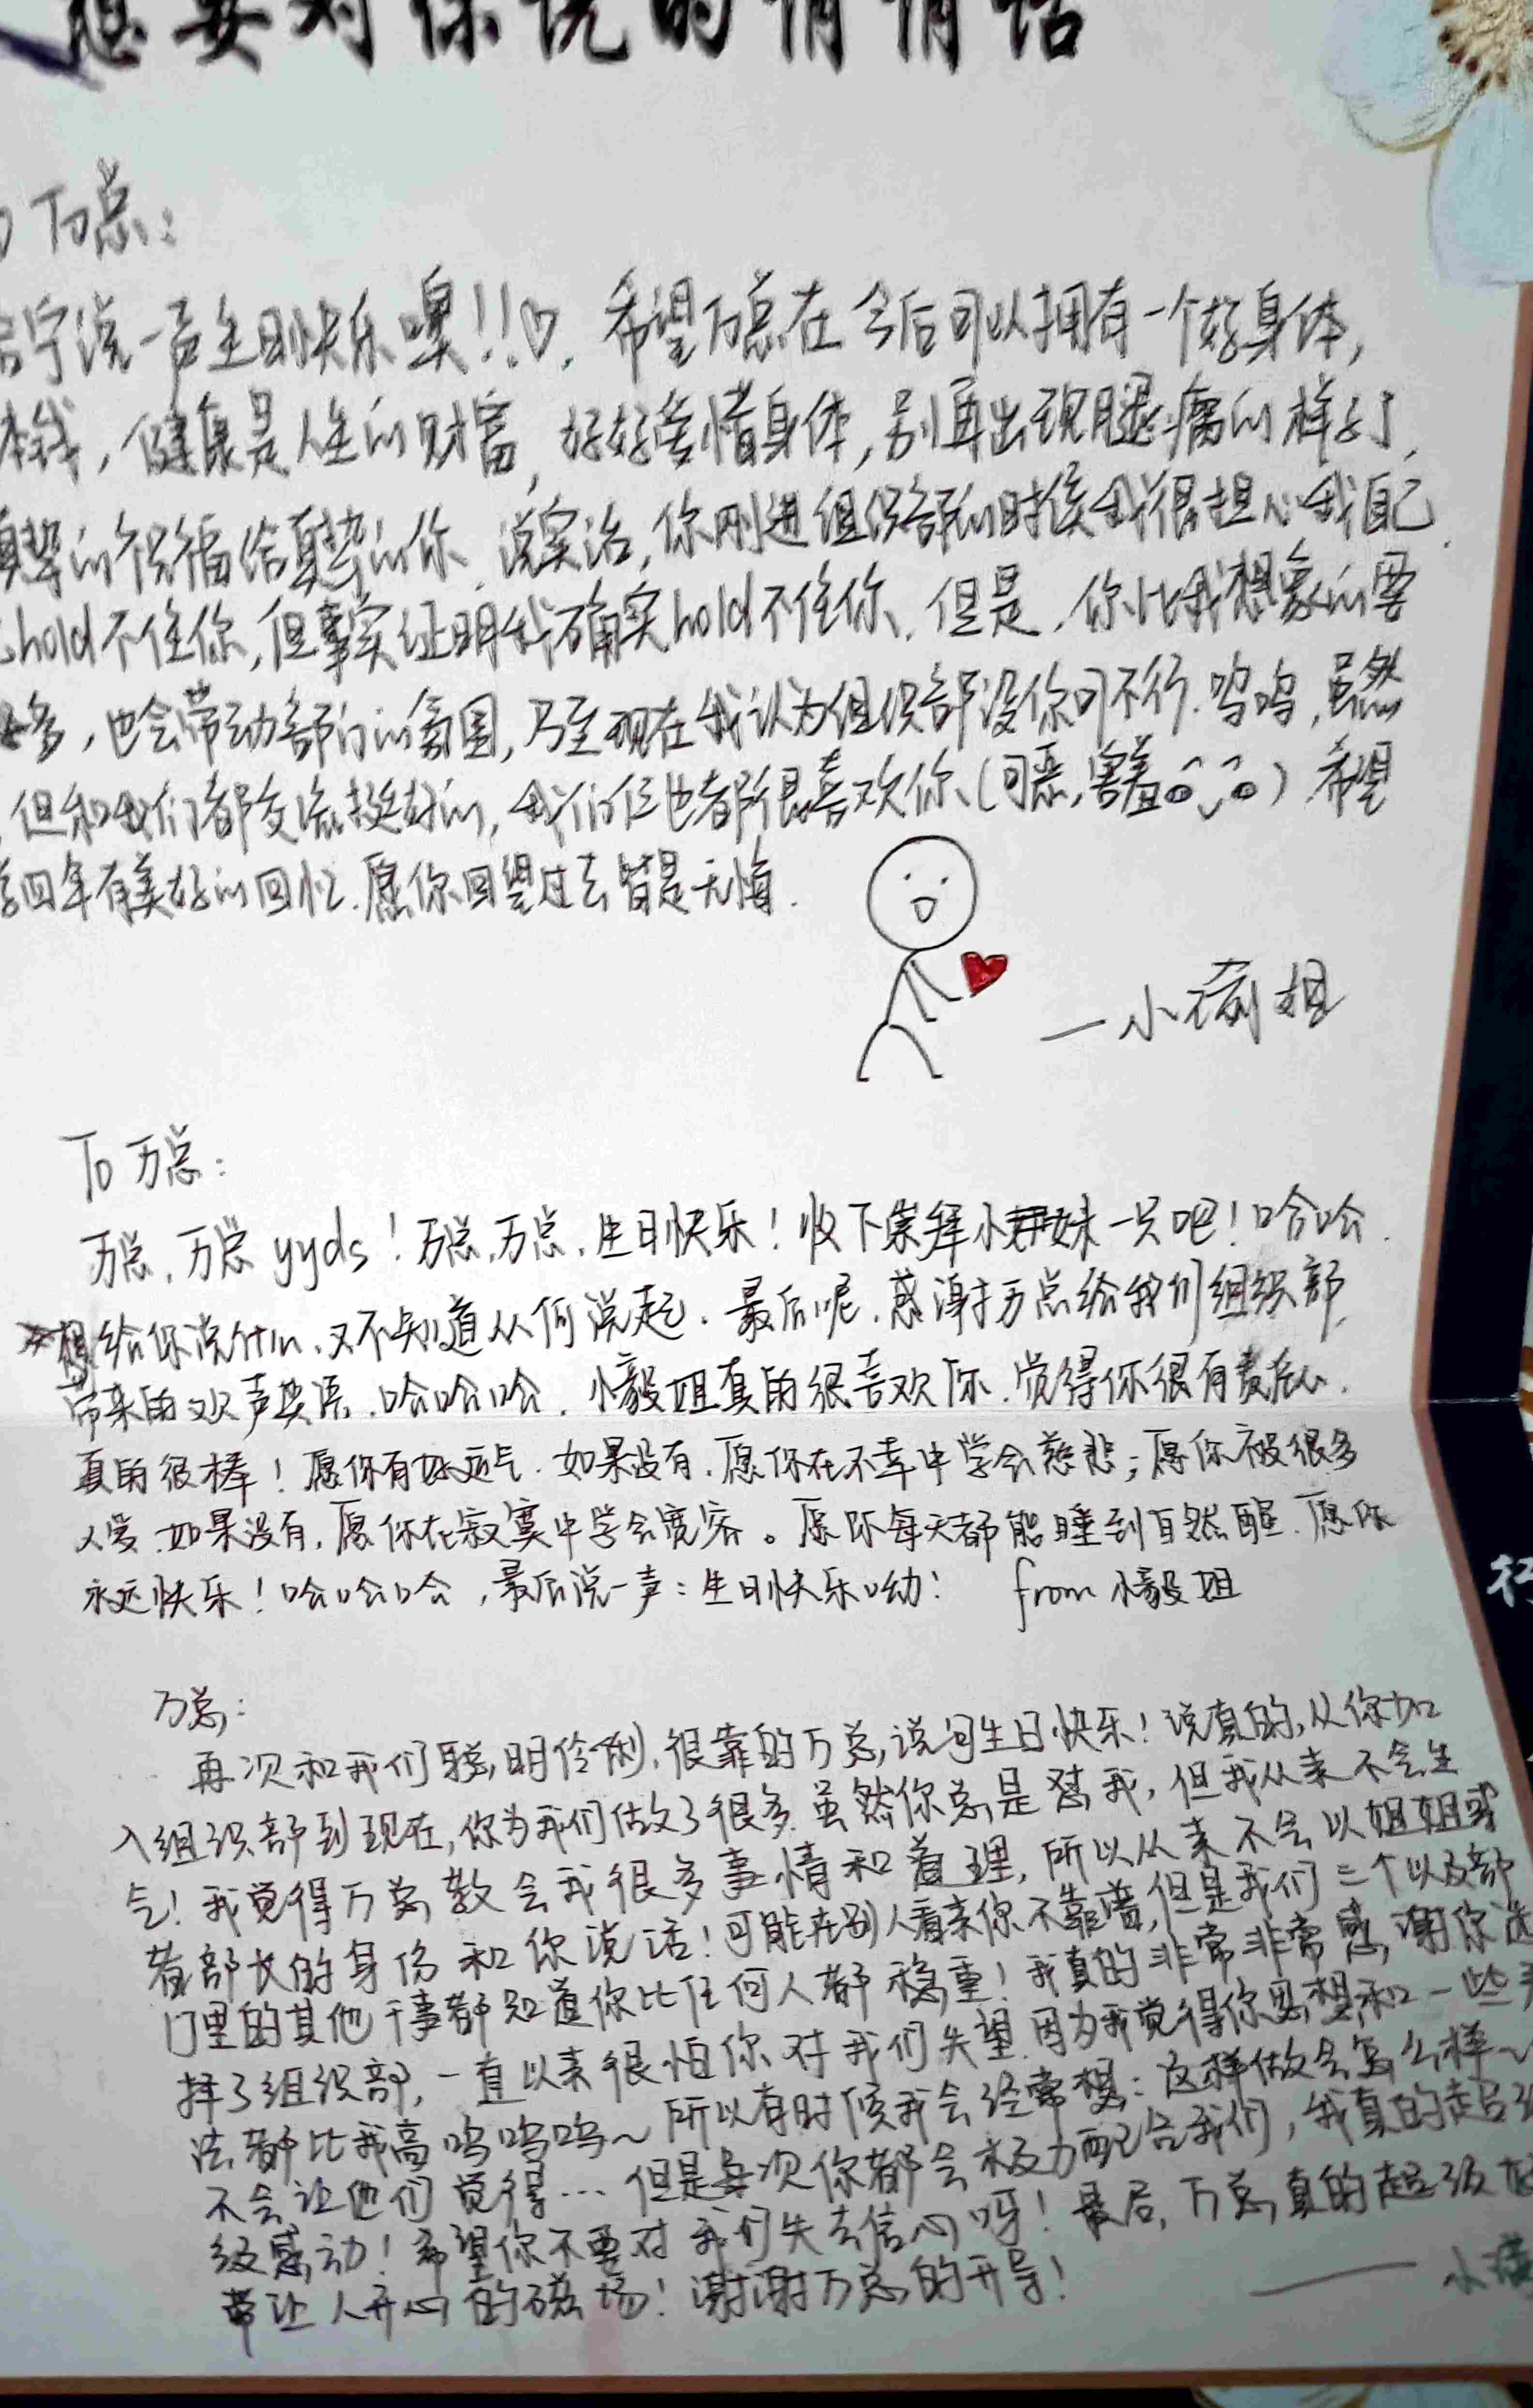 想要对你说的悄悄话
万总：
宁说一声生日快乐噢！！♡. 希望万总在今后可以拥有一个好身体,
本钱，健康是人生的财富, 好好爱惜身体,别再出现腿痛的样子了,
真挚的祝福给真挚的你. 说实话,你刚进组织部的时候我很担心我自己
hold不住你,但事实证明我确实hold不住你. 但是,你比我想象的要
多,也会带动部门的氛围,乃至现在我认为组织部没你可不行.呜呜,虽然
但和我们都交流挺好的,我们也都很喜欢你(可恶,害羞) 希望
四年有美好的回忆.愿你回望过去皆是无悔.
一小 姐
To 万总：
万总,万总 yyds！万总,万总,生日快乐！收下 小 妹一只吧！哈哈.
想给你说什么,又不知道从何说起.最后呢,感谢万总给我们组织部
带来的欢声笑语.哈哈哈.小毅姐真的很喜欢你.觉得你很有责任心.
真的很棒！愿你有好运气.如果没有,愿你在不幸中学会慈悲；愿你被很多
人爱.如果没有,愿你在寂寞中学会宽容。愿你每天都能睡到自然醒.愿你
永远快乐！哈哈哈,最后说一声：生日快乐呦！ from 小毅姐
万总：
再次和我们聪明伶俐,很靠的万总,说句生日快乐！说真的,从你加
入组织部到现在,你为我们做了很多.虽然你总是怼我,但我从来不会生
气！我觉得万总教会我很多事情和道理,所以从来不会以姐姐或
着部长的身份和你说话！可能在别人看来你不靠谱,但是我们三个以及部
门里的其他干事都知道你比任何人都稳重！我真的非常非常感谢你选
择了组织部,一直以来很怕你对我们失望.因为我觉得你思想和一些
法都比我高呜呜呜～所以有时候我会经常想：这样做会怎么样～
不会让他们觉得…但是每次你都会极力配合我们,我真的超级
级感动！希望你不要对我们失去信心呀！最后,万总真的超级
带让人开心的磁场！谢谢万总的开导！
——小